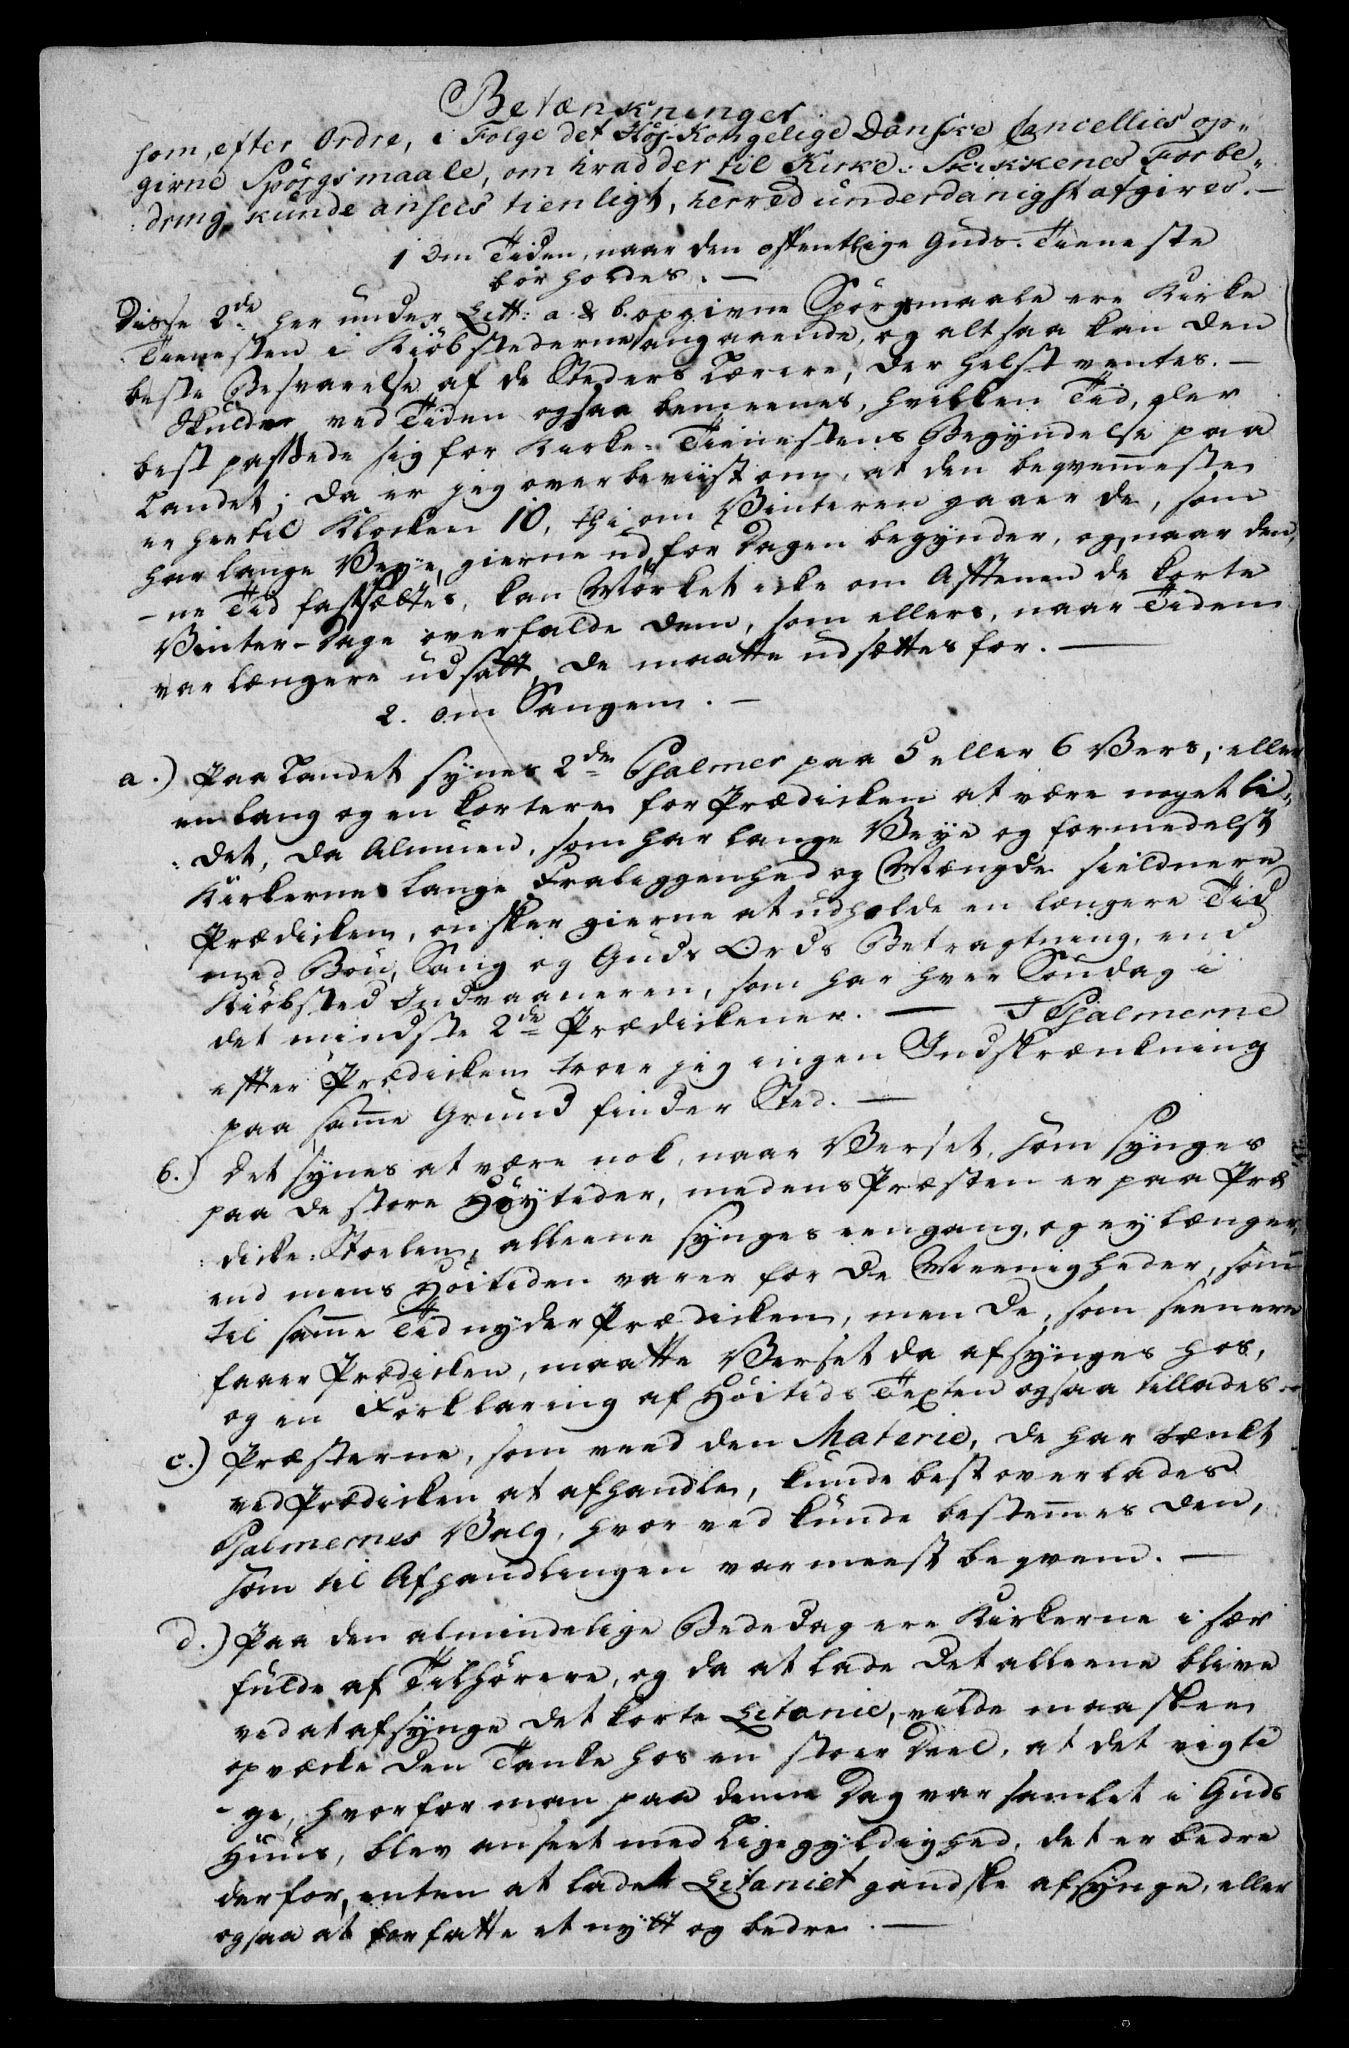 Betænkninger
som, efter Ordre, i Følge det Høj-Kongelige Danske Cancellies op„
givne Spørgsmaale, om hvad der til Kirke-Skikkenes Forbe„
dring kunde ansees tienligt, herved underdanigst afgives. —
1 Om Tiden, naar den offentlige Guds-Tieneste
bør holdes. —
Disse 2de her under Litt: a & b. opgivne Spørgsmaale ere Kirke
Tienesten i Kiøbstederne angaaende, og altsaa kan den
beste Besvarelse af de Steders Lærere, der helst ventes. —
Skulde ved Tiden ogsaa bemeenes, hvilken Tid, der
best passede sig for Kirke-Tienestens Begyndelse paa
Landet; da er jeg overbeviist om, at den beqvemmeste
er hertil Klocken 10, thi om Vinteren gaaer de, som
har lange Veye, gierne ud, for Dagen begynder, og, naar den„
-ne Tid fastsættes, kan Mørket icke om Afftenen de korte
Vinter-Dage overfalde dem, som ellers, naar Tiden
var længere udsatt, de maatte udsættes for. —
2. Om Sangen. —
a.) Paa Landet synes 2de Psalmer paa 5 eller 6 Vers, eller
en lang og en kortere for Prædicken at være noget li„
det, da Almuen, som har lange Veye og formedelst
Kirkernes lange Fraliggenhed og Mængde sieldnere
Prædicken, ønsker gierne at udholde en længere Tid
med Bøn, Sang og Guds Ords Betragtning, end
Kiøbsted Indvaaneren, som har hver Søndag i
det mindste 2de Prædickener. — I Psalmerne
efter Prædicken troer jeg ingen Indskrænkning
paa samme Grund finder Sted. —
b.) Det synes at være nok, naar Verset, som synges
paa de store Høytider, medens Præsten er paa Præ
dicke-Stoelen, alleene synges eengang, og ey længer,
end mens Høitiden varer for de Meenigheder, som
til samme Tid nyder Prædicken, men de, som seenere
faaer Prædicken, maatte Verset da afsynges hos,
og en Forklaring af Høitids Texten ogsaa tillades. —
c.) Præsterne, som veed den Materie, de har tænkt
ved Prædicken at afhandle, kunde best overlades
Psalmernes Valg, hvor ved kunde bestemmes den,
som til Afhandlingen var meest beqvem. —
d.) Paa den almindelige Bededag ere Kirkerne i sær
fulde af Tilhørere, og da at lade det alleene blive
ved at afsynge det korte Litanie, vilde maaskee
opvække den Tanke hos en stoer Deel, at det vigti
-ge, hvorfor man paa denne Dag var samlet i Guds
Huus, blev anseet med Ligegyldighed, det er bedre
derfor, enten at lade Litaniet gandske afsynge, eller
ogsaa at forfatte et nytt og bedre. —